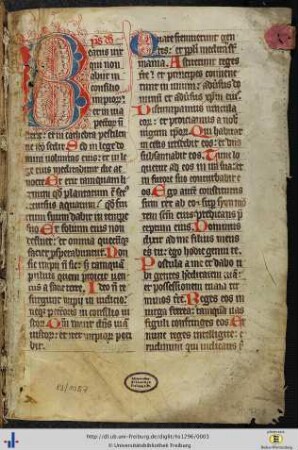 Beatus vir
qui non
abiit in
consilio
impior
et in via
peccator
tit et in cathedra pestilen
tie non sedit Sed in lege do
mini voluntas eius et in le
ge eius meditabitur die ac
nocte Et erit tanquam li
gnum qd plantatum est se
cursus aquarum qd fru
ctum suum dabit in tempore
suo Et folium eius non
defluet et omnia quecumqz
faciet prosperabuntur Non
sic impii non sic sed tanqua
pulvis quem proicit ven
tus a facie terre Ideo non re
surgunt impii in iudicio
neqz peccatores in consilio iu
storum Qm novit dns viā
iustorum et iter impiorum peri
bit
Quare fremuerunt gen
tes et populi meditati sunt
inania Astiterunt reges
terre et principes convene
runt in unum adversus do
minum et adversus xpm eius
Disrumpamus vincula
eorum et proiciamus a no
bis iugum ipsorum Qui habitat
in celis irridebit eos et dns
subsannabit eos Tunc lo
quetur ad eos in ira sua et
in furore suo conturbabit
eos Ego autem constitutus
sum rex ab eo super syon mon
tem sctm eius predicans pre
ceptum eius Dominus
dixit ad me filius meus
es tu ego hodie genui te
Postula a me et dabo ti
bi gentes hereditatem tuam
et possessionem tuam ter
minos terre Reges eos in
virga ferrea et tanquam vas
figuli confringes eos Et
nunc reges intelligite e
rudimini qui iudicatis
http://dl.ub.uni-freiburg.de/diglit/hs1296/0003
© Universitätsbibliothek Freiburg